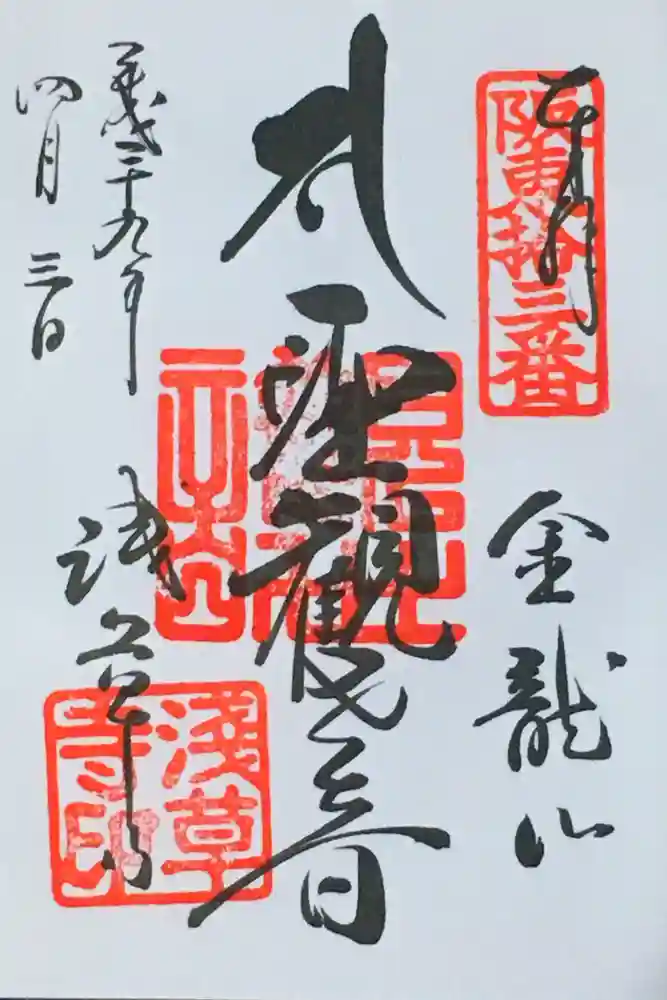 奉拝
阪東拾三番
金龍山
聖観音
平成二十九年
四月三日
浅草寺
浅草
寺印